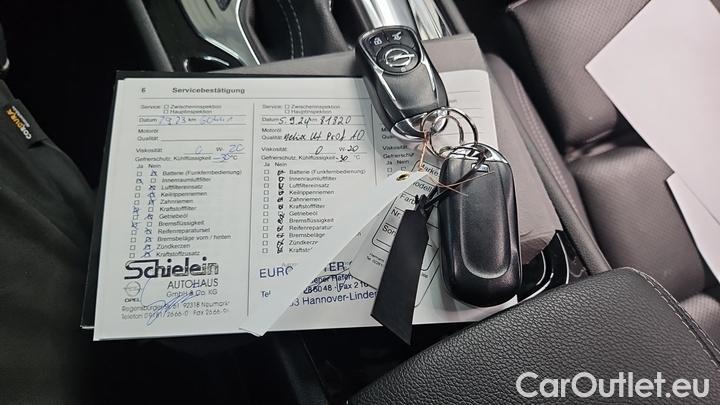 6 Servicebestätigung
Service: Zwischeninspektion
Hauptinspektion
Datum km
Motoröl
Qualität
Viskosität 0 W- 20
Gefrierschutz, Kühlflüssigkeit -30 °C
Ja Nein
Batterie (Funkfernbedienung)
Innenraumluftfilter
Luftfiltereinsatz
Keilrippenriemen
Zahnriemen
Kraftstofffilter
Getriebeöl
Bremsflüssigkeit
Reifenreparaturset
Bremsbeläge vorn / hinten
Zündkerzen
Kraftstoffzusatz
Schielein
AUTOHAUS
GmbH & Co. KG
OPEL
92318 Neumarkt
Telefon 09181/2666-0 Fax 2666-
Service: Zwischeninspektion
Hauptinspektion
Datum 5.9.24 km 81820
Motoröl
Qualität
Viskosität 0 W- 20
Gefrierschutz, Kühlflüssigkeit -30 °C
Ja Nein
Batterie (Funkfernbedienung)
Innenraumluftfilter
Luftfiltereinsatz
Keilrippenriemen
Zahnriemen
Kraftstofffilter
Getriebeöl
Bremsflüssigkeit
Reifenreparaturset
Bremsbeläge
Zündkerzen
Kraftstoff
EURO
Tel
Fax 2 10
Hannover-Linden
Marke
Modell
Farbe
Nr.
CORDURA
CarOutlet.eu